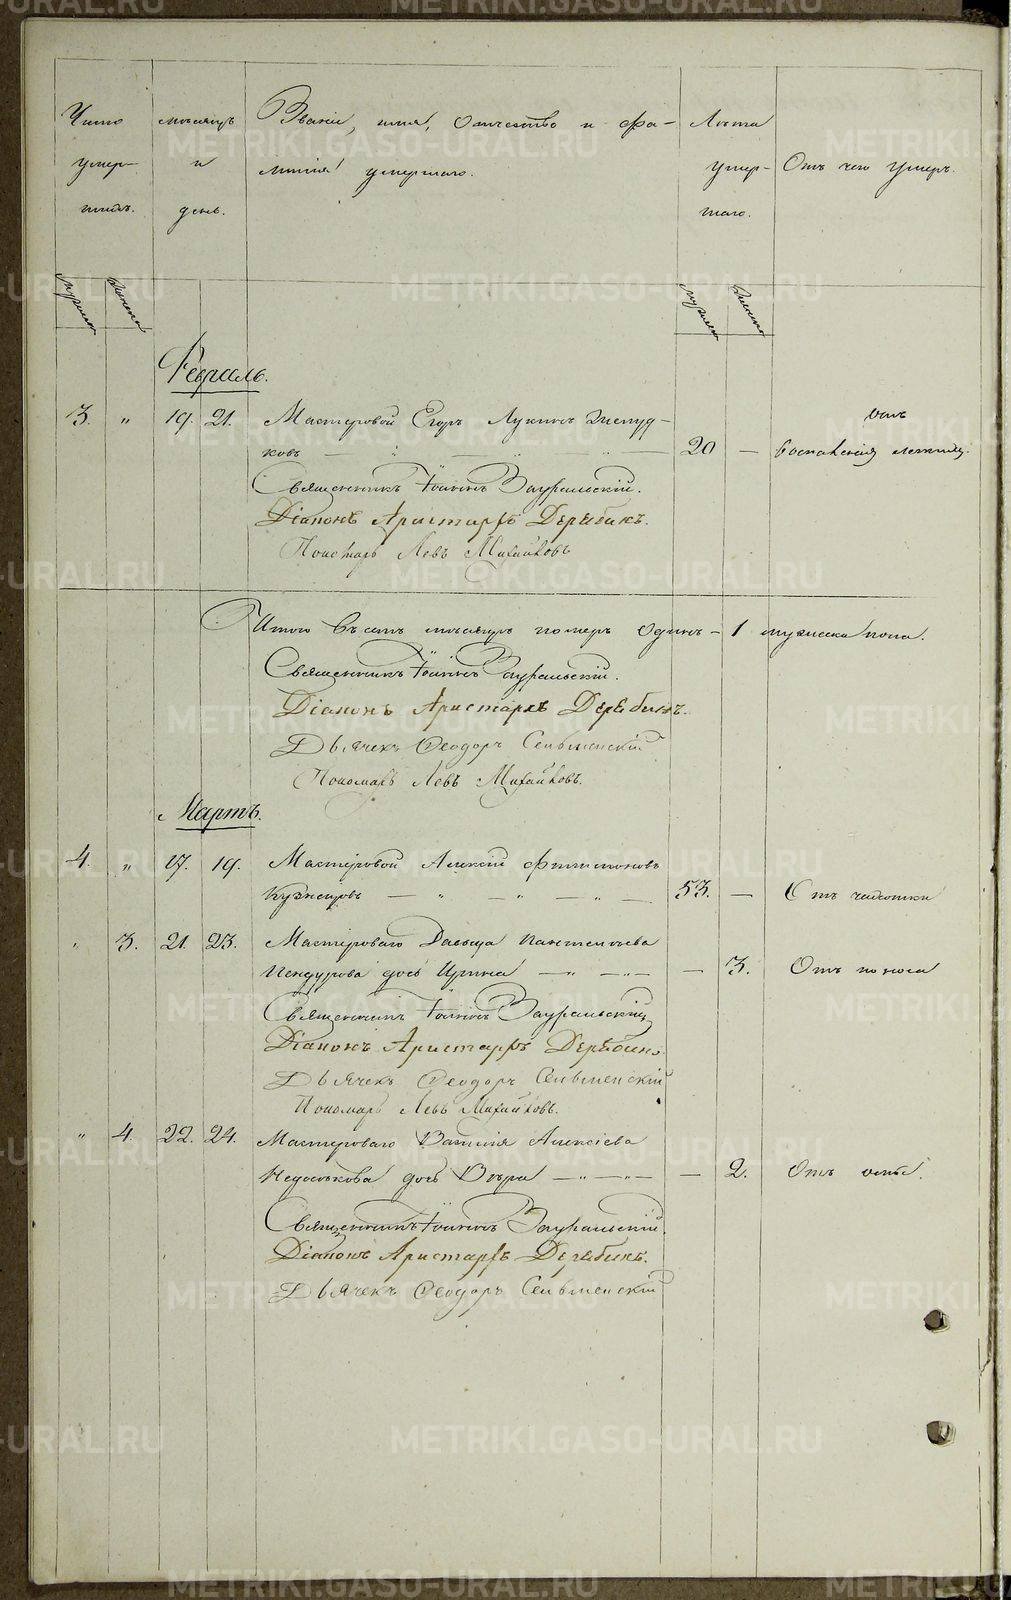 Число мѣсяцъ Званіе, имя, отчество и фа- Лѣта
умер- и милія умершаго. умер- Отъ чего умеръ.
шихъ. день. шаго.
мужеска женска мужеска женска
Февраль.
3. " 19. 21. Мастеровой Егоръ Лукинъ отъ
ковъ 20 — воспаленія легкихъ.
Священникъ Іоаннъ Зауральскій.
Діаконъ Аристархъ Дерябинъ.
Пономарь Левъ Михайловъ
Итого въ семъ мѣсяцѣ померъ одинъ - 1 мужеска пола.
Священникъ Іоаннъ Зауральскій.
Діаконъ Аристархъ Дерябинъ.
Дьячекъ Ѳеодоръ Сельменскій
Пономарь Левъ Михайловъ.
Мартъ.
4. " 17. 19. Мастеровой Алексій Филимоновъ
Кузнецовъ — " — " — " — 53. — Отъ чахотки
" 3. 21. 23. Мастероваго Давыда Пантелѣева
дочь Ирина — " — " — — 3. Отъ поноса
Священникъ Іоаннъ Зауральскій
Діаконъ Аристархъ Дерябинъ
Дьячекъ Ѳеодоръ Сельменскій
Пономарь Левъ Михайловъ.
" 4. 22. 24. Мастероваго Василія Алексіева
дочь Вѣра — " — " — — 2. Отъ оспы.
Священникъ Іоаннъ Зауральскій.
Діаконъ Аристархъ Дерябинъ.
Дьячекъ Ѳеодоръ Сельменскій
METRIKI.GASO-URAL.RU